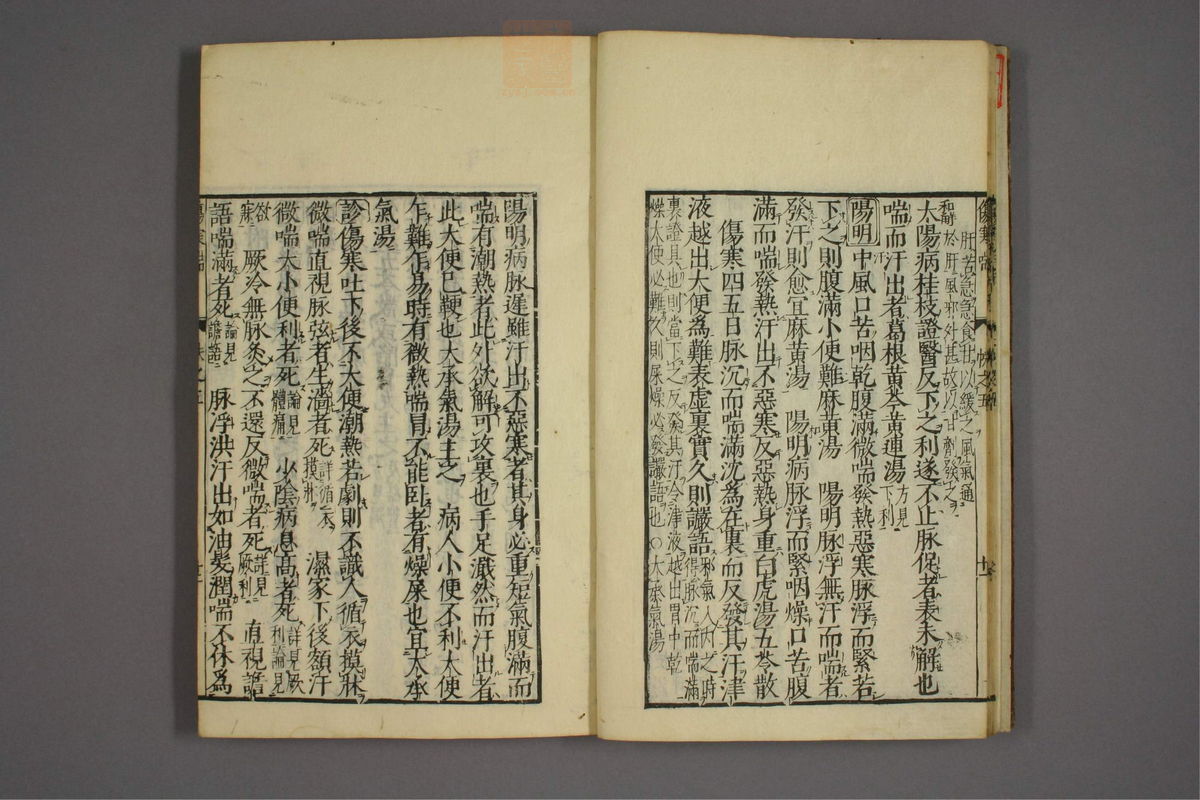 肝苦急急食甘以緩之風氣通
於肝風邪外甚故以甘劑發之
太陽病桂枝證醫反下之利遂不止脉促者表未解也
喘而汗出者葛根黄芩黄連湯方見下利
陽明中風口苦咽乾腹滿微喘發熱惡寒脉浮而緊若
下之則腹滿小便難麻黄湯 陽明脉浮無汗而喘者
發汗則愈宜麻黄湯 陽明病脉浮而緊咽燥口苦腹
滿而喘發熱汗出不惡寒反惡熱身重白虎湯五苓散
傷寒四五日脉沉而喘滿沈為在裏而反發其汗津
液越出大便為難表虚裏實久則讝語邪氣入内之時得脉沉而喘滿
裏證具也則當下之反發其汗令津液越出胃中乾
燥大便必難久則屎燥必發讝語也○大承氣湯
陽明病脉遲雖汗出不惡寒者其身必重短氣腹滿而
喘有潮熱者此外欲解可攻裏也手足濈然而汗出者
此大便已鞕也大承氣湯主之 病人小便不利大便
乍難乍易時有微熱喘冒不能卧者有燥屎也宜大承
氣湯
診傷寒吐下後不大便潮熱若劇則不識人循衣摸牀
微喘直視脉弦者生濇者死詳循衣摸牀 濕家下後額汗
微喘大小便利者死論見體痛 少陰病息高者死詳見厥利論見
欲寐 厥冷無脉灸之不還反微喘者死詳見厥利 直視譫
語喘滿者死論見譫語 脉浮洪汗出如油髮潤喘不休為